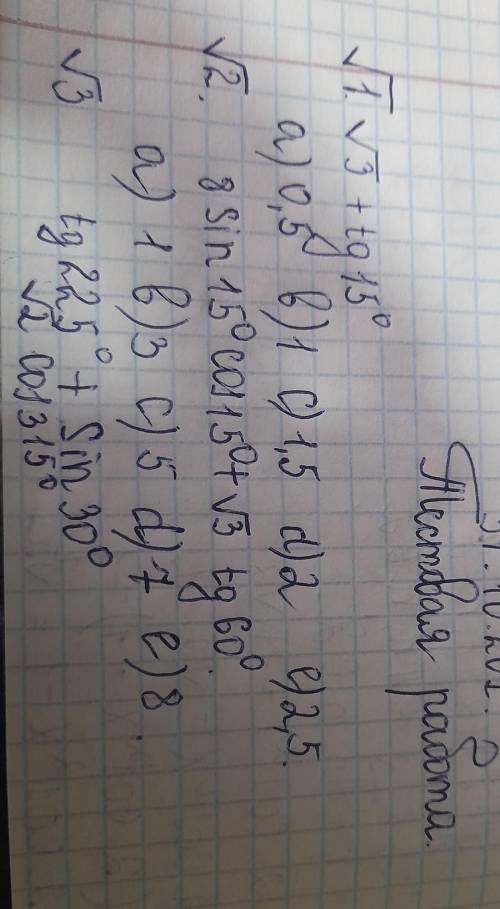 Тестовая работа.
√1. √3 + tg 15°
a) 0,5 b) 1 c) 1,5 d) 2 e) 2,5.
√2. 8 sin 15° cos 15° + √3 tg 60°.
a) 1 b) 3 c) 5 d) 7 e) 8.
√3 tg 225° + sin 30°
√2 cos 315°